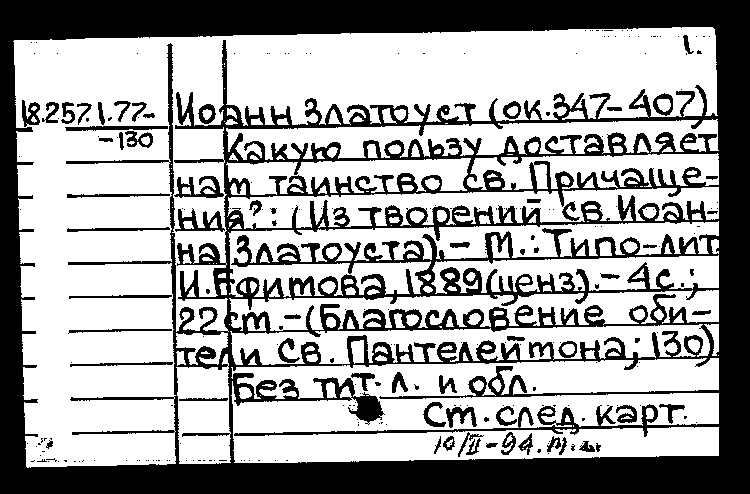 1.
18.257.1.77- Иоанн Златоуст (ок.347-407).
-130 Какую пользу доставляет
нам таинство св. Причаще-
ния?: (Из творений св. Иоан-
на Златоуста).- М.: Типо-лит.
И.Ефимова, 1889(ценз).- 4с.;
22см.-(Благословение оби-
тели св. Пантелеймона; 130).
Без тит. л. и обл.
См. след. карт.
10/II-94.